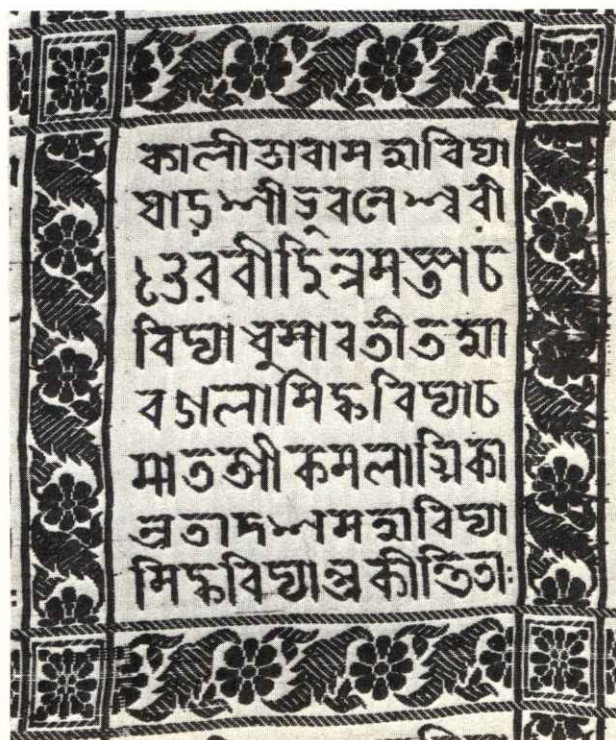 কালীতাবামহাবিদ্যা
ষোড়শীভুবনেশ্বরী
ভৈরবীছিন্নমস্তাচ
বিদ্যাধুমাবতীতথা
বগলাসিদ্ধবিদ্যাচ
মাতঙ্গীকমলাত্মিকা
এতাদশমহাবিদ্যা
সিদ্ধবিদ্যাপ্রকীর্ত্তিতাঃ